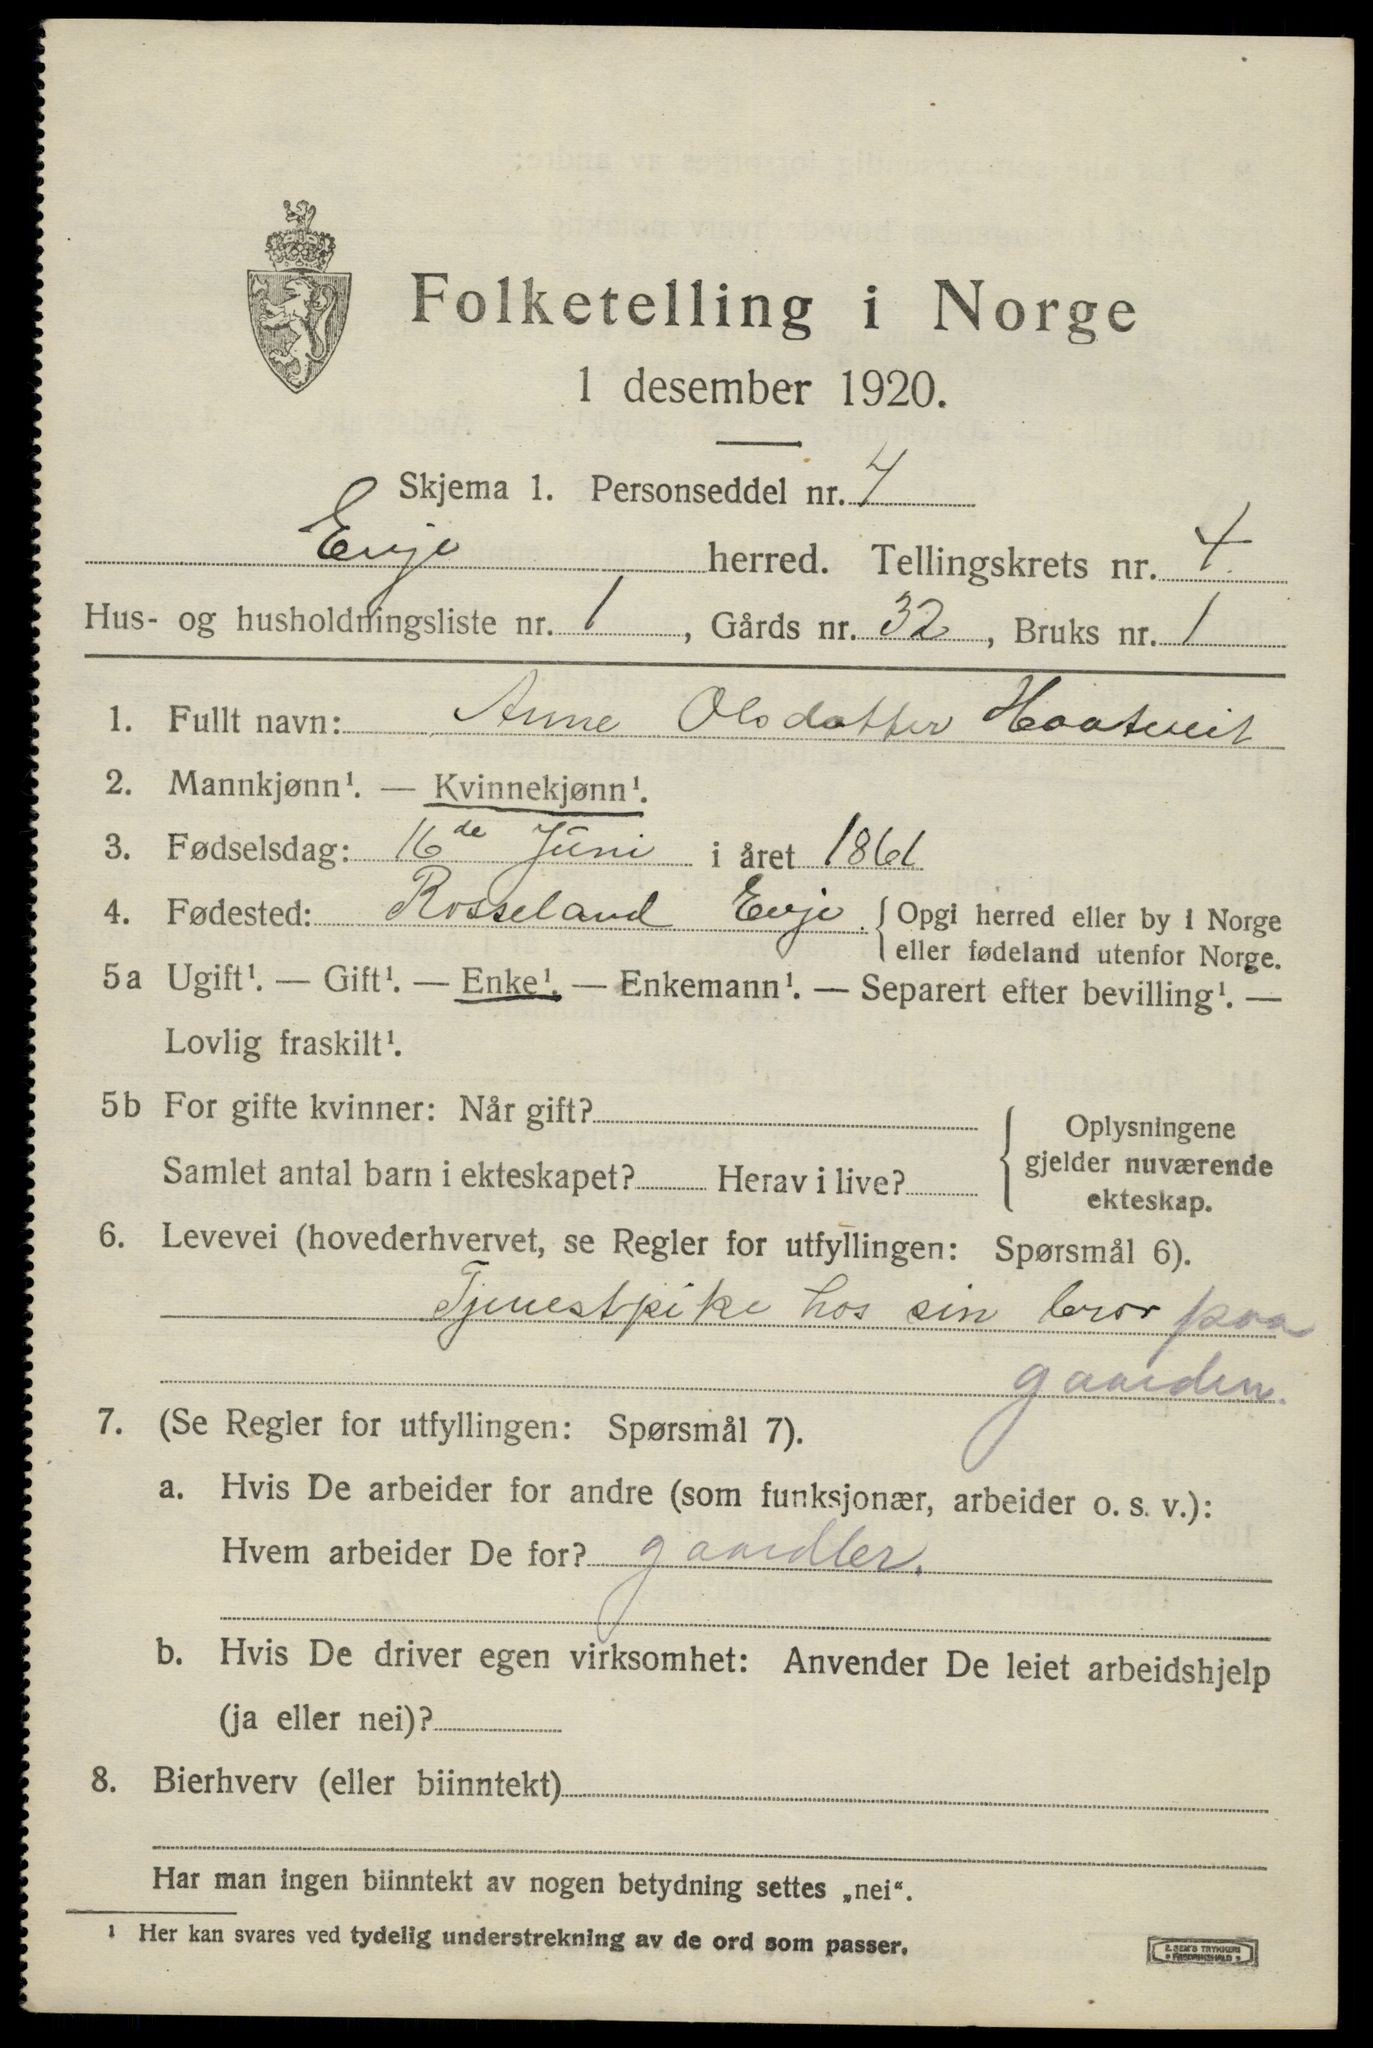 Folketelling i Norge
1 desember 1920.
Skjema 1. Personseddel nr. 4
Evje herred. Tellingskrets nr. 4.
Hus- og husholdningsliste nr. 1, Gårds nr. 32, Bruks nr. 1
1. Fullt navn: Anne Olsdatter Haatveit
2. Mannkjønn¹. — Kvinnekjønn¹.
3. Fødselsdag: 16de Juni i året 1861
4. Fødested: Rosseland Evje. { Opgi herred eller by i Norge
eller fødeland utenfor Norge.
5a Ugift¹. — Gift¹. — Enke¹. — Enkemann¹. — Separert efter bevilling¹. —
Lovlig fraskilt¹.
5b For gifte kvinner: Når gift?
Samlet antal barn i ekteskapet? Herav i live?
Oplysningene
gjelder nuværende
ekteskap.
6. Levevei (hovederhvervet, se Regler for utfyllingen: Spørsmål 6).
Tjenestpike hos sin bror paa
gaarden.
7. (Se Regler for utfyllingen: Spørsmål 7).
a. Hvis De arbeider for andre (som funksjonær, arbeider o. s. v.):
Hvem arbeider De for? gaardbr.
b. Hvis De driver egen virksomhet: Anvender De leiet arbeidshjelp
(ja eller nei)?
8. Bierhverv (eller biinntekt)
Har man ingen biinntekt av nogen betydning settes „nei“.
¹ Her kan svares ved tydelig understrekning av de ord som passer.
E. SEM'S TRYKKERI
FREDRIKSHALD